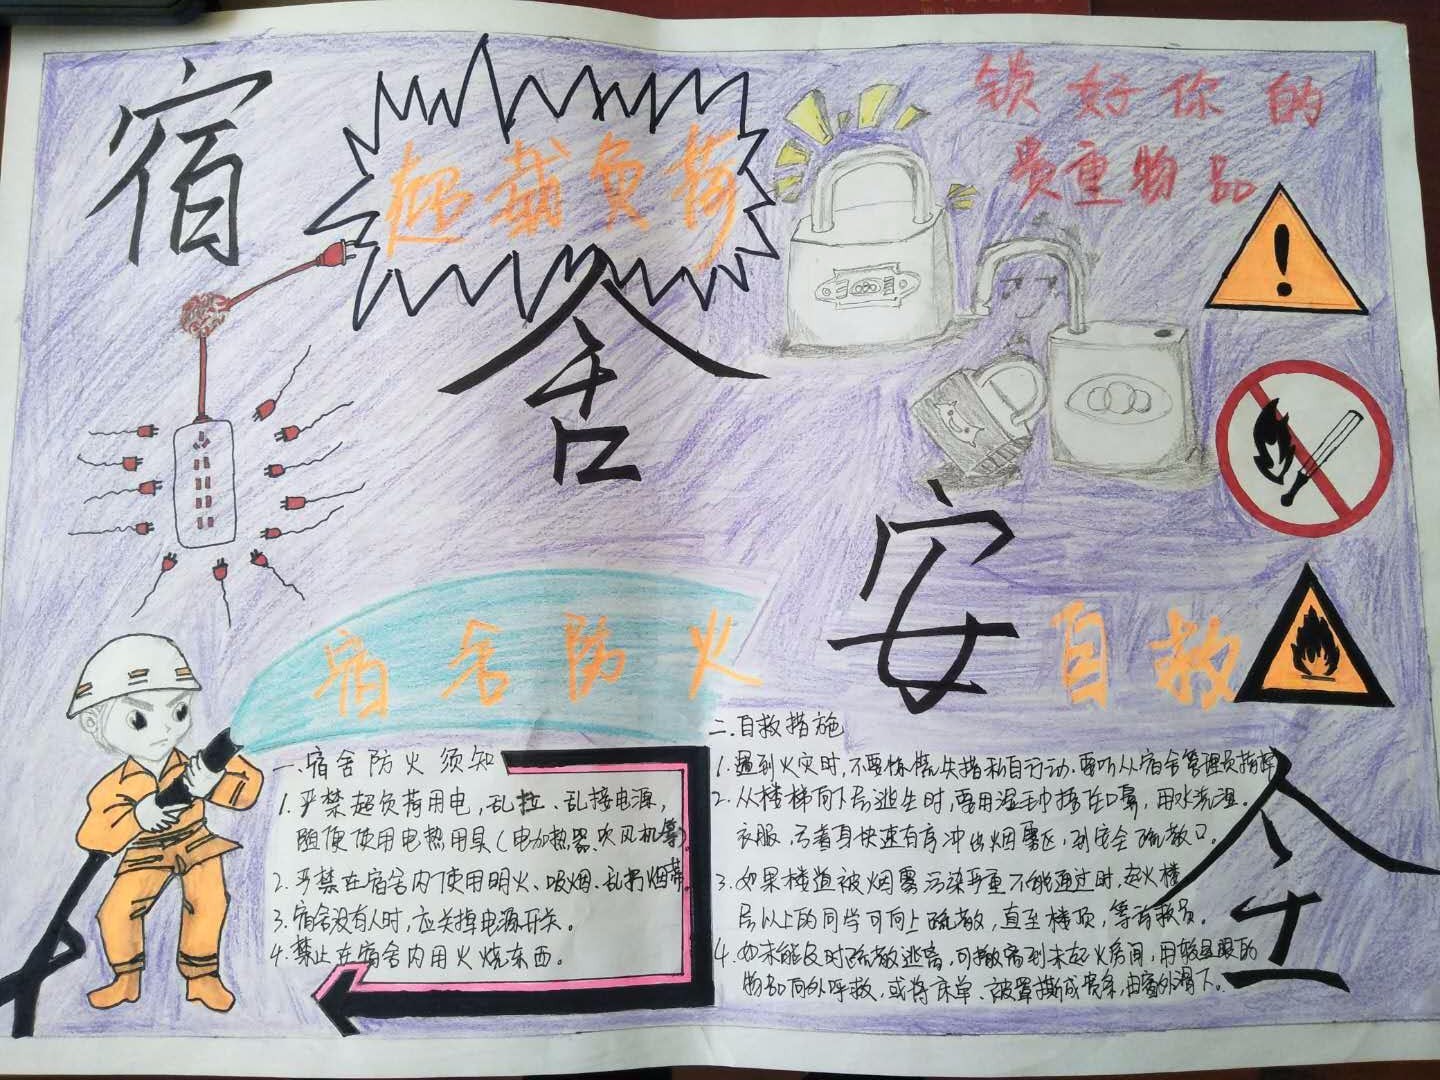 宿舍安全
超载负荷
锁好你的
贵重物品
宿舍防火
自救
一、宿舍防火须知
1. 严禁超负荷用电,乱拉、乱接电源,
随便使用电热用具(电加热器、吹风机等)。
2. 严禁在宿舍内使用明火、吸烟、乱扔烟蒂。
3. 宿舍没有人时,应关掉电源开关。
4. 禁止在宿舍内用火烧东西。
二. 自救措施
1. 遇到火灾时,不要惊慌失措私自行动,要听从宿舍管理员指挥
2. 从楼梯向下层逃生时,要用湿毛巾捂住口鼻,用水浇湿。
衣服,弓着身快速有序冲出烟雾区,到安全疏散口。
3. 如果楼道被烟雾污染严重不能通过时,起火楼
层以上的同学可向上疏散,直至楼顶,等待救员。
4. 如未能及时疏散逃离,可撤离到未起火房间,用较显眼的
物品向外呼救,或将床单、被罩撕成条,由窗外滑下。